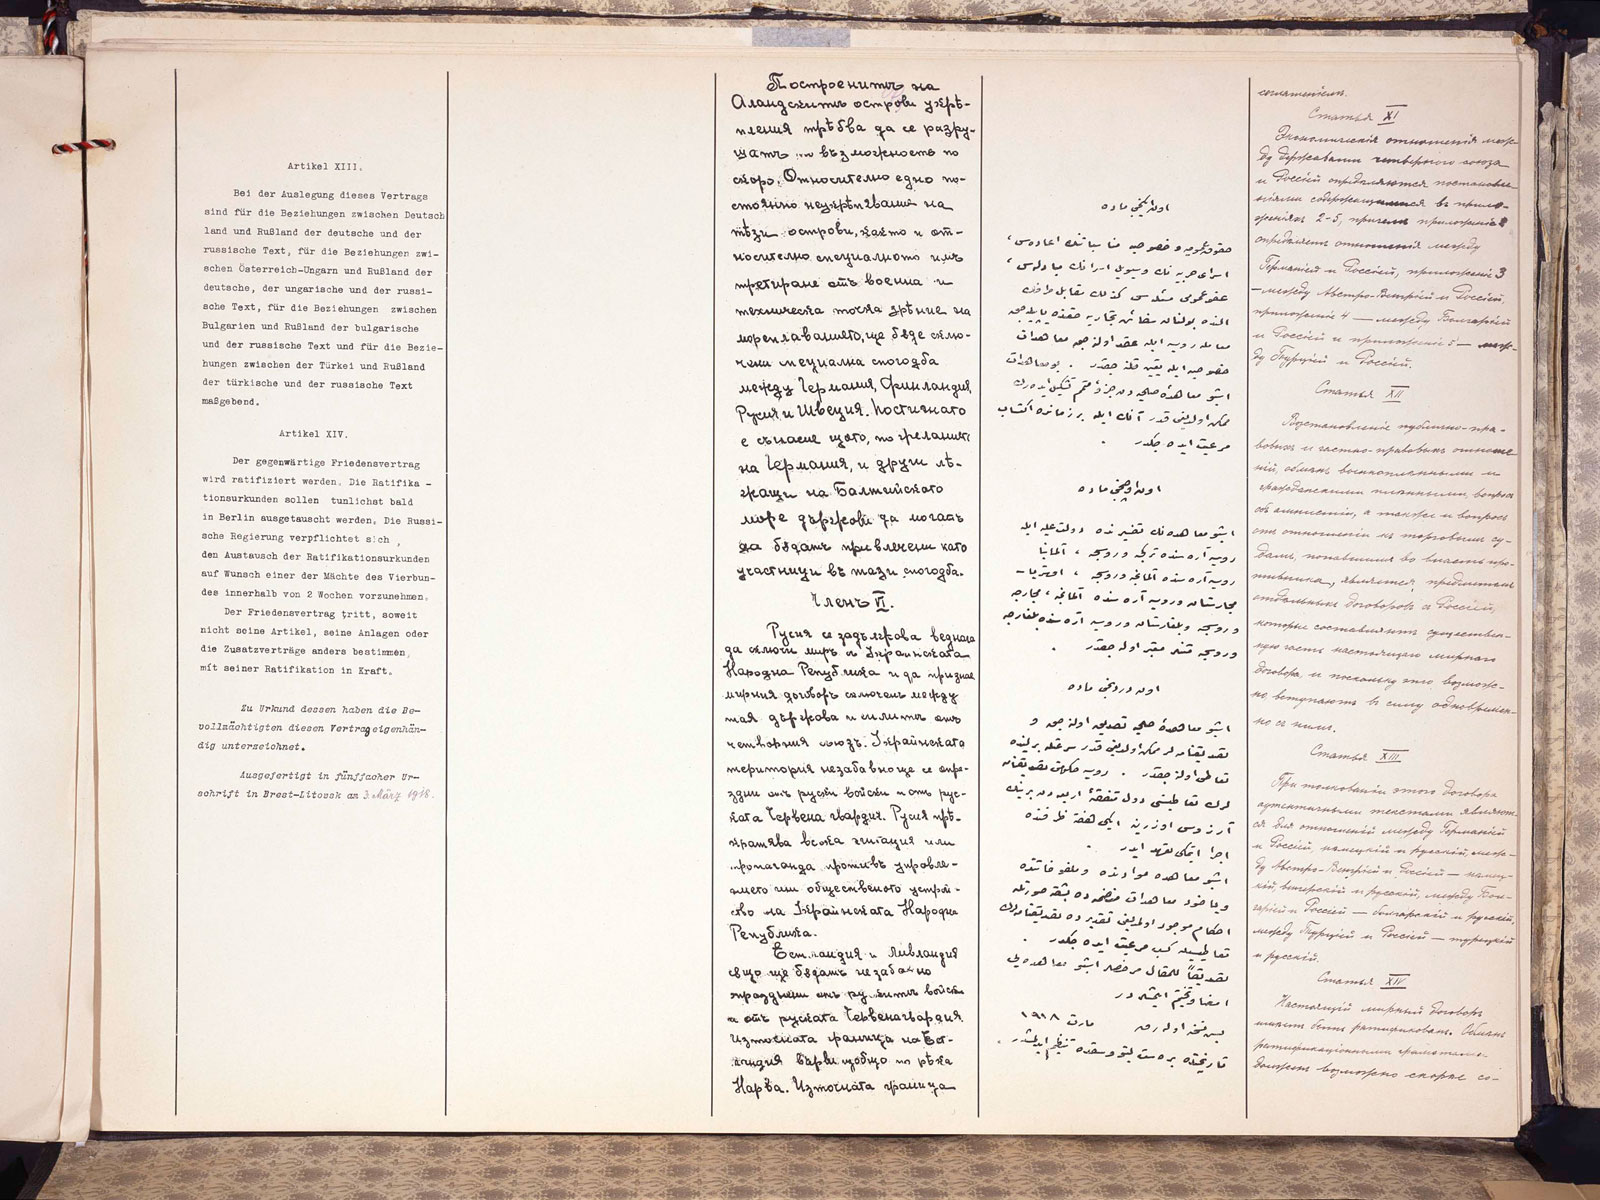 Artikel XIII.
Bei der Auslegung dieses Vertrags
sind für die Beziehungen zwischen Deutsch
land und Rußland der deutsche und der
russische Text, für die Beziehungen zwi-
schen Österreich-Ungarn und Rußland der
deutsche, der ungarische und der russi-
sche Text, für die Beziehungen zwischen
Bulgarien und Rußland der bulgarische
und der russische Text und für die Bezie-
hungen zwischen der Türkei und Rußland
der türkische und der russische Text
maßgebend.
Artikel XIV.
Der gegenwärtige Friedensvertrag
wird ratifiziert werden. Die Ratifika -
tionsurkunden sollen tunlichst bald
in Berlin ausgetauscht werden. Die Russi-
sche Regierung verpflichtet sich ,
den Austausch der Ratifikationsurkunden
auf Wunsch einer der Mächte des Vierbun-
des innerhalb von 2 Wochen vorzunehmen.
Der Friedensvertrag tritt, soweit
nicht seine Artikel, seine Anlagen oder
die Zusatzverträge anders bestimmen,
mit seiner Ratifikation in Kraft.
Zu Urkund dessen haben die Be-
vollmächtigten diesen Vertrag eigenhän-
dig unterzeichnet.
Ausgefertigt in fünffacher Ur-
schrift in Brest-Litovsk am 3. März 1918.
Построенитѣ на
Аландскитѣ острови укрѣ-
пления трѣбва да се разру-
шатъ по възможность по
скоро. Относително едно по-
стоянно неукрѣпяване на
тѣзи острови, както и от-
носително специалното имъ
третиране отъ военна и
техническа точка зрѣние на
мореплаванието, ще бѫде склю-
чена специална спогодба
между Германия, Финландия,
Русия и Швеция. Постигнато
е съгласие щото, по желанието
на Германия, и други лѣ-
жащи на Балтийското
море държави да могатъ
да бѫдатъ привлечени като
участници въ тази спогодба.
Членъ VI.
Русия се задължава веднага
да сключи миръ съ Украинската
Народна Република и да признае
мирния договоръ сключенъ между
тая държава и силитѣ отъ
четворния съюзъ. Украинската
територия незабавно ще се опра-
здни отъ руски войски и отъ рус-
ката Червена гвардия. Русия прѣ-
кратява всѣка агитация или
пропаганда противъ управле-
нието или общественото устрой-
ство на Украинската Народна
Република.
Естландия и Ливландия
сѫщо ще бѫдатъ незабавно
опразднени отъ рускитѣ войски
и отъ руската Червена гвардия.
Източната граница на Ест-
ландия върви изобщо по рѣка
Нарва. Източната граница
اون ایکنجی ماده
حقوق عمومیه و خصوصیه مناسباتنك اعاده‌سی،
اسرای حربیه نك و سیویل اسرانك مبادله‌سی،
عفو عمومی مسئله‌سی
اون اوچنجی ماده
اشبو معاهده نك تفسیرنده دولت علیه ایله
روسیه آره سنده ترکجه و روسجه ، آلمانیا
روسیه آره سنده آلمانجه و روسجه ، اوستریا -
مجارستان و روسیه آره سنده آلمانجه ، مجارجه
و روسجه و بلغارستان و روسیه آره سنده بلغارجه
و روسجه متنلر معتبر اوله جقدر .
اون دردنجی ماده
اشبو معاهدۀ صلحیه تصدیق اوله جق و
اجرا ایتمکی تعهد ایدر .
مارت ١٩١٨
соглашеніем.
Статья XI
Экономическія отношенія меж-
ду державами четверного союза
и Россіей опредѣляются постановле-
ніями содержащимися въ прило-
женіях 2-5, причемъ приложеніе 2
опредѣляетъ отношенія между
Германіей и Россіей, приложеніе 3
— между Австро-Венгріей и Россіей,
приложеніе 4 — между Болгаріей
и Россіей и приложеніе 5 — меж-
ду Турціей и Россіей.
Статья XII
Возстановленіе публично-пра-
вовых и частно-правовых отноше
ній, обмѣн военноплѣнными и
гражданскими плѣнными, вопрос
об амнистіи, а также и вопрос
объ отношеніи къ торговым су-
дам, попавшим во власть про-
тивника, является предметом
отдѣльных договоров с Россіей,
которые составляют существен-
ную часть настоящаго мирнаго
договора, и поскольку это возмож-
но, вступают в силу одновремен-
но с ним.
Статья XIII
При толкованіи этого договора
аутентичными текстами являют-
ся для отношеній между Германіей
и Россіей, нѣмецкій и русскій, меж-
ду Австро-Венгріей и Россіей — нѣмец-
кій, венгерскій и русскій, между Бол-
гаріей и Россіей — болгарскій и русскій,
между Турціей и Россіей — турецкій
и русскій.
Статья XIV
Настоящій мирный договоръ
имѣет быть ратификован. Обмѣн
ратификаціонными грамотами
должен возможно скорѣе со-